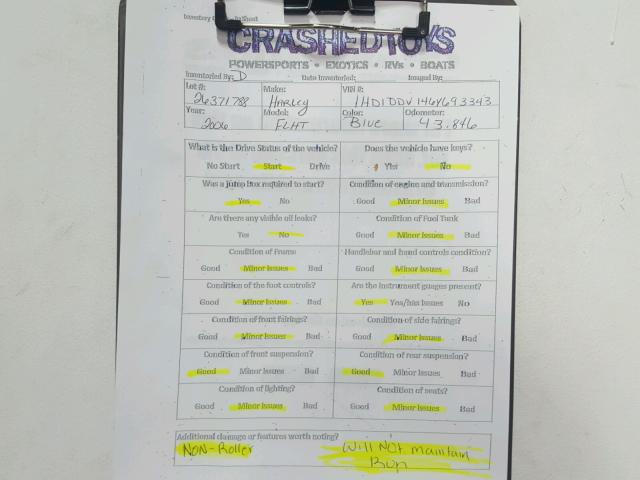 Inventory Sheet
CRASHEDTOYS
POWERSPORTS • EXOTICS • RVs • BOATS
Inventoried By: D Date Inventoried: Imaged By:
Lot #: Make: VIN #:
26371788 Harley 1HD1DDV146Y693343
Year: Model: Color: Odometer:
2006 FLHT Blue 43,846
What is the Drive Status of the vehicle? Does the vehicle have keys?
No Start Start Drive Yes No
Was a jump box required to start? Condition of engine and transmission?
Yes No Good Minor Issues Bad
Are there any visible oil leaks? Condition of Fuel Tank
Yes No Good Minor Issues Bad
Condition of Frame Handlebar and hand controls condition?
Good Minor Issues Bad Good Minor Issues Bad
Condition of the foot controls? Are the instrument guages present?
Good Minor Issues Bad Yes Yes/has Issues No
Condition of front fairings? Condition of side fairings?
Good Minor Issues Bad Good Minor Issues Bad
Condition of front suspension? Condition of rear suspension?
Good Minor Issues Bad Good Minor Issues Bad
Condition of lighting? Condition of seats?
Good Minor Issues Bad Good Minor Issues Bad
Additional damage or features worth noting?
NON-Roller Will NOT maintain
Run